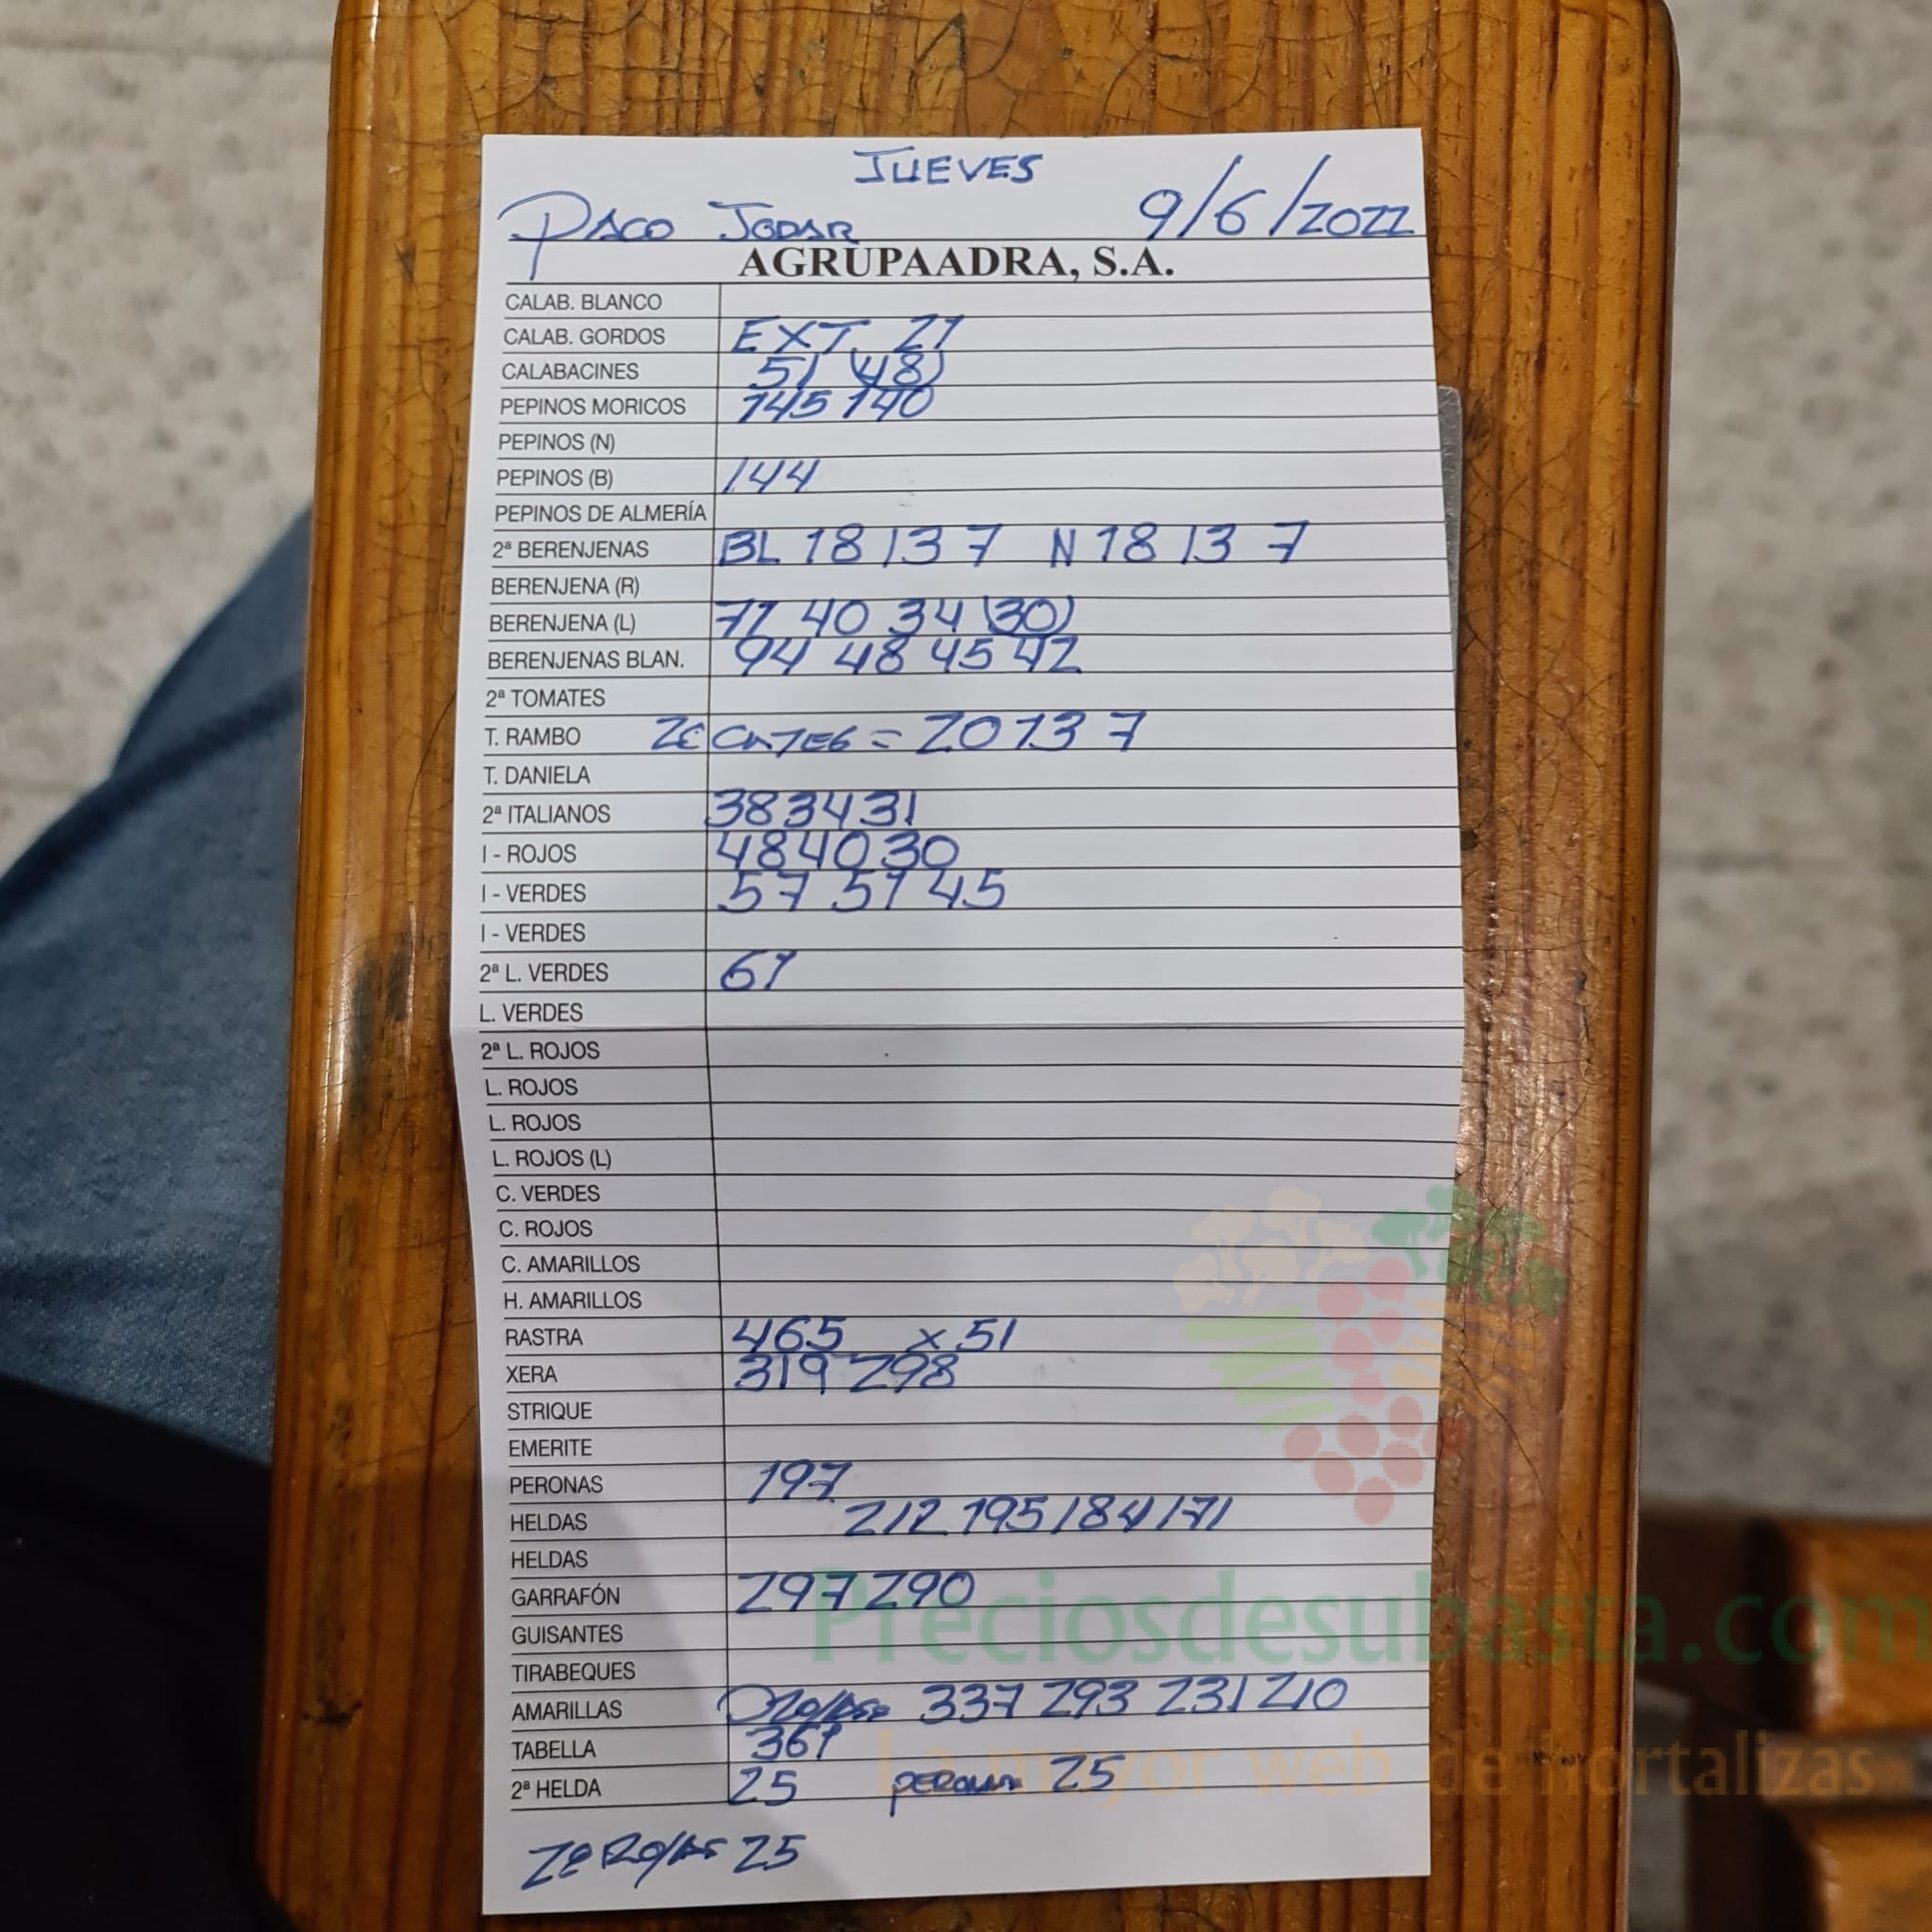 JUEVES
PACO JODAR 9/6/2022
AGRUPAADRA, S.A.
CALAB. BLANCO
CALAB. GORDOS EXT 21
CALABACINES 51 (48)
PEPINOS MORICOS 145 140
PEPINOS (N)
PEPINOS (B) 144
PEPINOS DE ALMERÍA
2ª BERENJENAS BL 18 13 7 N 18 13 7
BERENJENA (R)
BERENJENA (L) 71 40 34 (30)
BERENJENAS BLAN. 94 48 45 42
2ª TOMATES
T. RAMBO = 20 13 7
T. DANIELA
2ª ITALIANOS 38 34 31
I - ROJOS 48 40 30
I - VERDES 57 51 45
I - VERDES
2ª L. VERDES 61
L. VERDES
2ª L. ROJOS
L. ROJOS
L. ROJOS
L. ROJOS (L)
C. VERDES
C. ROJOS
C. AMARILLOS
H. AMARILLOS
RASTRA 465 x 51
XERA 319 298
STRIQUE
EMERITE
PERONAS 197
HELDAS 212 195 184 171
HELDAS
GARRAFÓN 297 290
GUISANTES
TIRABEQUES
AMARILLAS 337 293 231 210
TABELLA 361
2ª HELDA 25 perona 25
2ª ROJAS 25
Preciosdesubasta.com
La mayor web de hortalizas